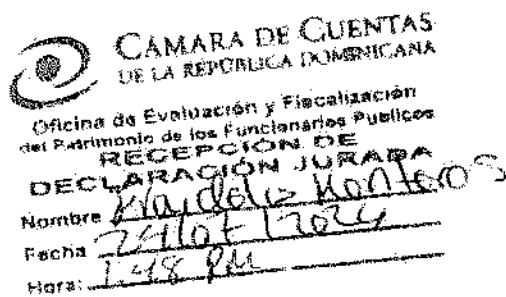 CÁMARA DE CUENTAS
DE LA REPÚBLICA DOMINICANA
Oficina de Evaluación y Fiscalización
del Patrimonio de los Funcionarios Publicos
RECEPCIÓN DE
DECLARACIÓN JURADA
Nombre
Fecha 2024
Hora: 1:48 PM